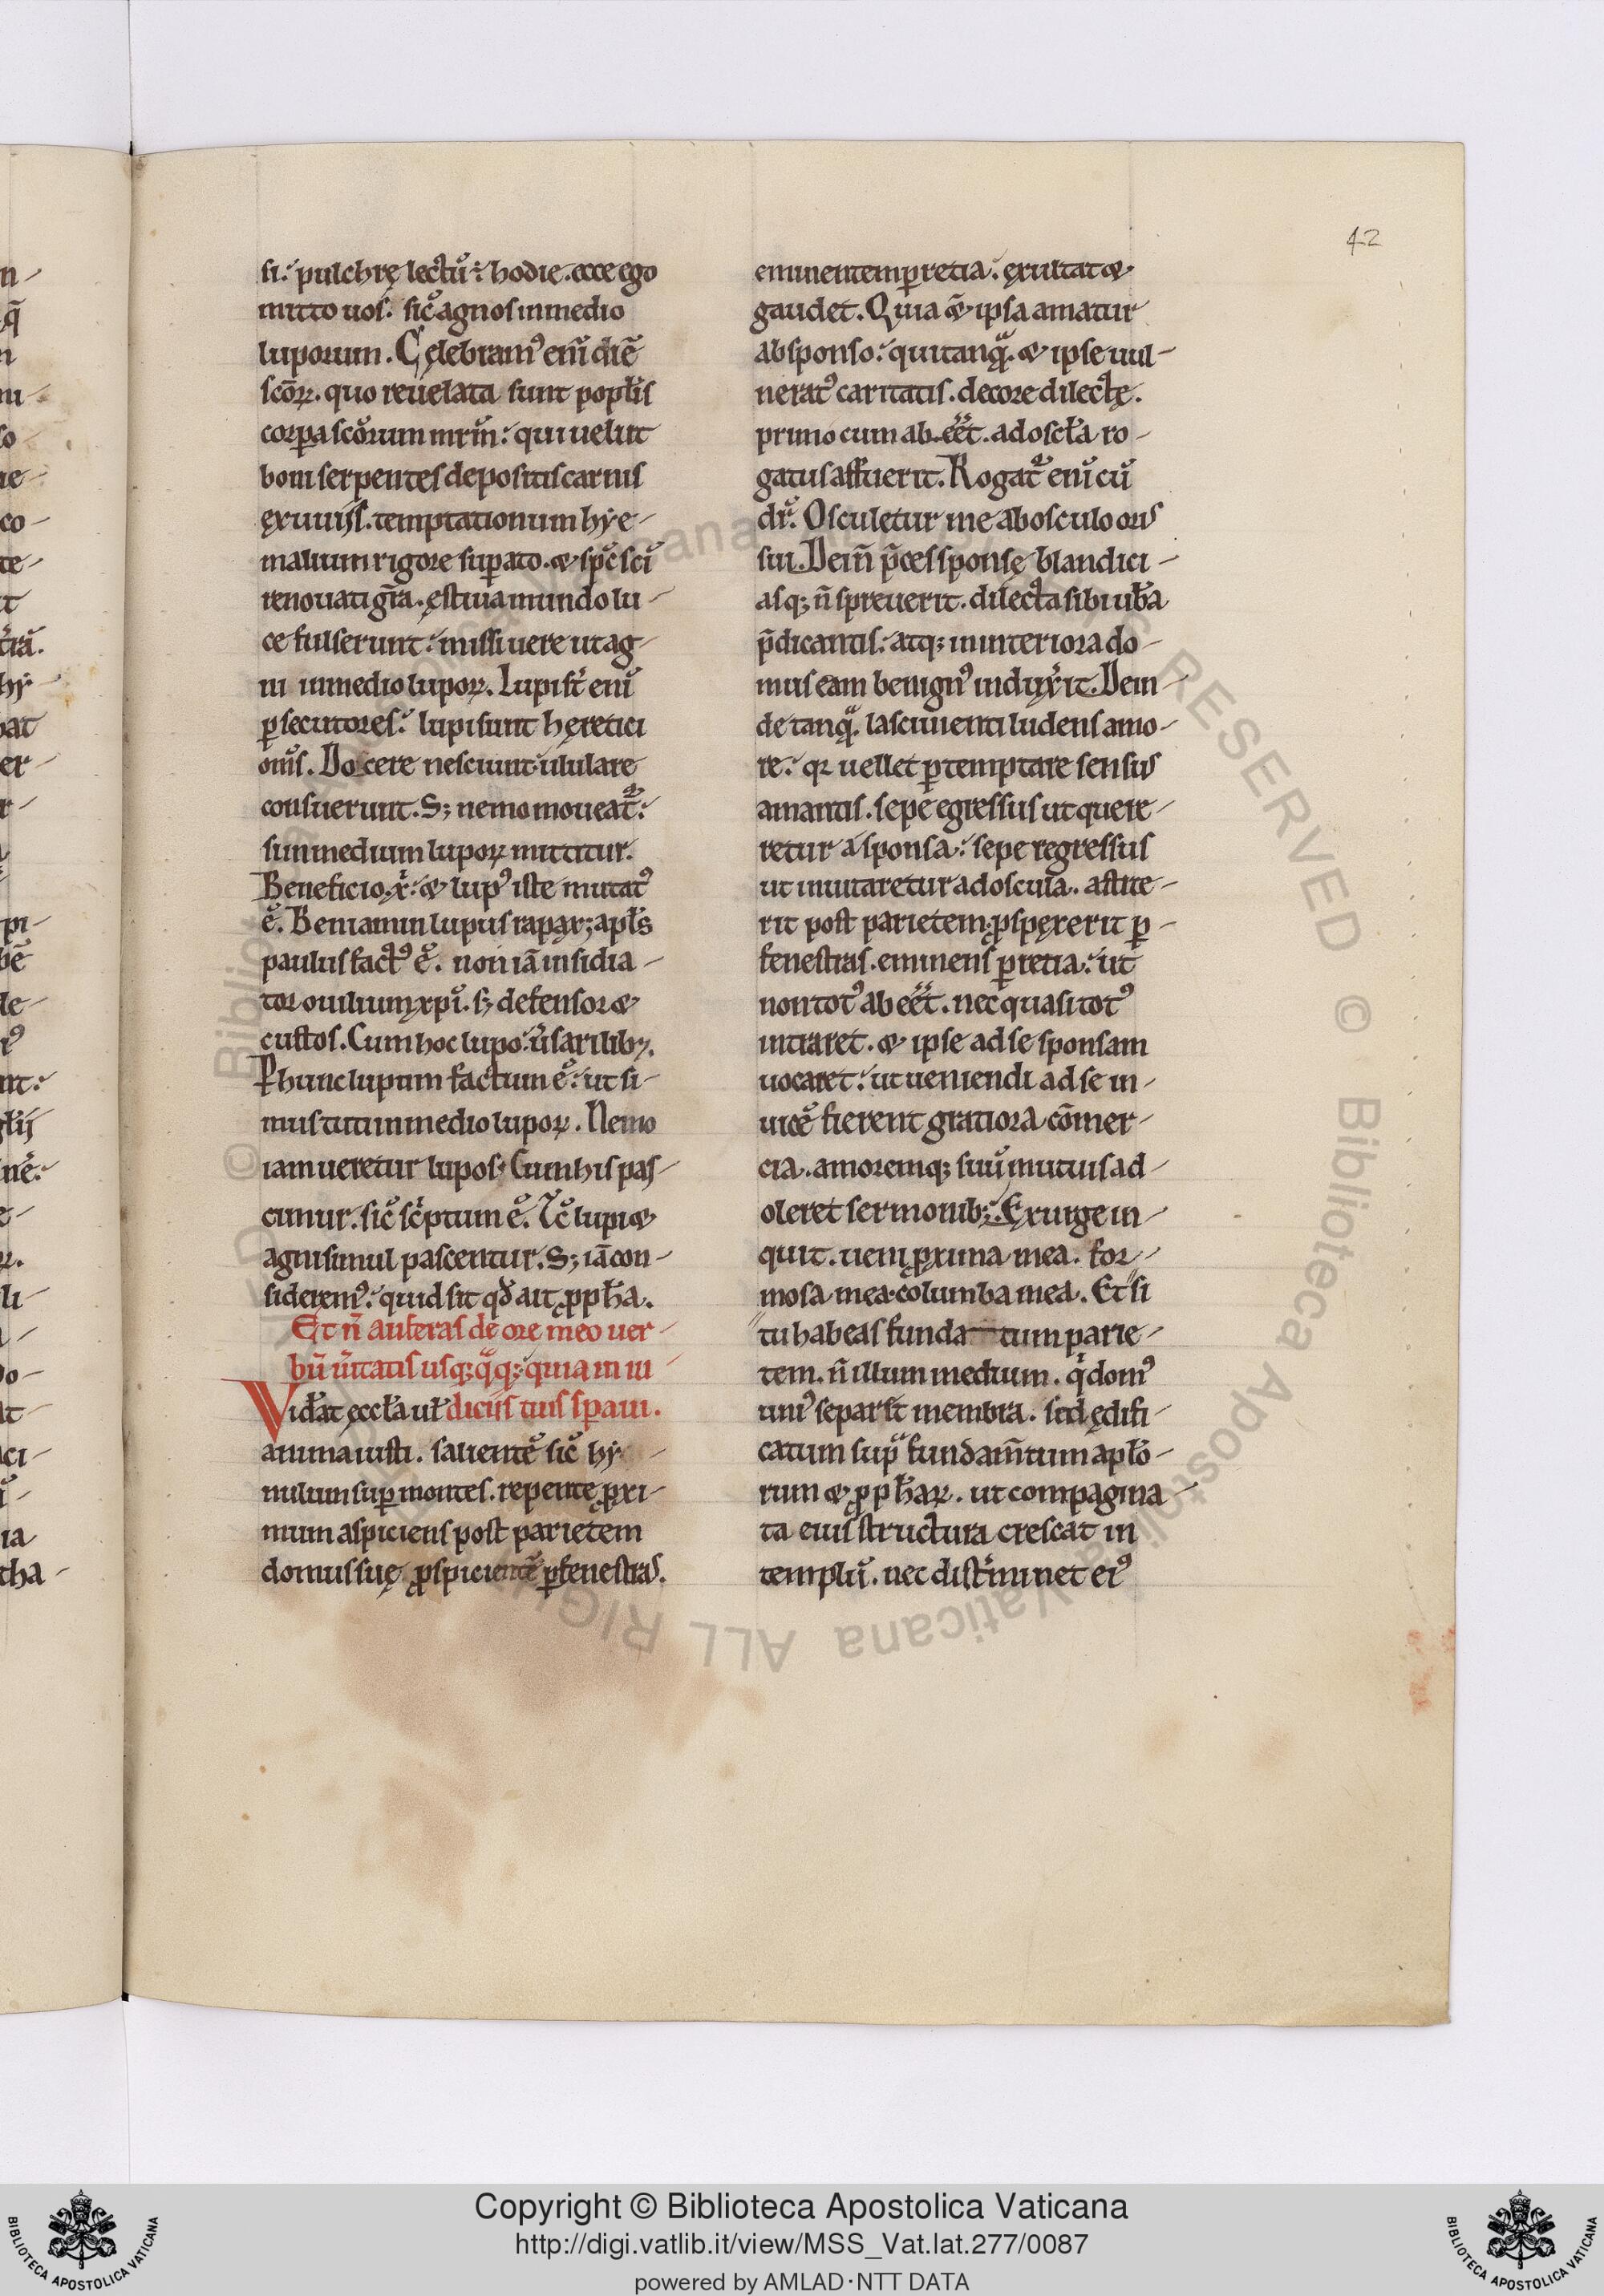 42
si. pulchrę lectū ÷ hodie. ecce ego
mitto uos. sic̄ agnos in medio
luporum. Cęlebramꝰ enī diē
scōꝝ. quo reuelata sunt popl̄is
corpa scōrum mrm̄. qui uelut
boni serpentes depositis carnis
exuuiis. temptationum hye-
malium rigore suꝑato. & sp̄c sci
renouati gr̄a. ęstiua mundo lu-
ce fulserunt. missi uere ut ag-
ni in medio lupoꝝ. Lupi st̄ enī
ꝑsecutores. lupi sunt hęretici
om̄s. Docere nesciunt. ululare
consuerunt. S; nemo moueat᷑.
si in medium lupoꝝ mittitur.
Beneficio xp̄i. & lupꝰ iste mutatꝰ
ē. Beniamin lupus rapax; apl̄s
paulus factꝰ ē. non iā insidia-
tor ouilium xpi. s; defensor &
custos. Cum hoc lupo. uersarilibꝫ.
P hunc lupum factum ē. ut si-
mus tuti in medio lupoꝝ. Nemo
iam ueretur lupos. Cum his pas-
cimur. sic̄ scͥptum ē. Tc̄ lupi &
agni simul pascentur. S; iā con-
sideremꝰ. quid sit qd̄ ait ꝓph̄a.
Et n̄ auferas de ore meo uer-
bū ūitatis usq; q̄q; quia in iu
diciis tuis sꝑaui.
Vidēat ęccl̄a ul̄
anima iusti. salientē sic̄ hy-
nulum suꝑ montes. repente ꝓxi-
mum aspiciens post parietem
domus suę ꝓspicientē ꝑ fenestras.
eminentem ꝑ retia. exultat &
gaudet. Quia & ipsa amatur
ab sponso. qui tanqͣ. & ipse uul-
neratꝰ caritatis. decore dilectę.
primo cum ab eēt. ad oscl̄a ro-
gatus affuerit. Rogat᷑ enī cū
dr̄. Osculetur me ab osculo oris
sui. Dein p̄ces sponsę blandici-
asq; n̄ spreuerit. dilecta sibi uerba
p̄dicantis. atq; in interiora do-
mus eam benignꝰ induxͥit. Dein-
de tanqͣ. lasciuienti ludens amo-
re. qꝛ uellet ꝑtemptare sensus
amantis. sepe egressus ut quere-
retur a sponsa. sepe regressus
ut inuitaretur ad oscula. astite-
rit post parietem. ꝓspexerit ꝑ
fenestras. eminens ꝑ retia. ut
non totꝰ ab eēt. nec quasi totꝰ
intraret. & ipse ad se sponsam
uocaret. ut ueniendi ad se in-
uicē fierent gratiora cōmer-
cia. amoremq; suū mutuis ad-
oleret sermonibꝫ. Exurge in-
quit. ueni ꝓxima mea. for-
mosa mea. columba mea. Etsi
tu habeas funda tum parie-
tem. n̄ illum medium. qͥ domꝰ
uniꝰ separ̄it membra. sed ędifi-
catum supͣ fundam̄tum apl̄o-
rum & ꝓph̄aꝝ. ut compagina-
ta eius structura crescat in
templū. nec distͥminet eiꝰ
Copyright © Biblioteca Apostolica Vaticana
http://digi.vatlib.it/view/MSS_Vat.lat.277/0087
powered by AMLAD·NTT DATA